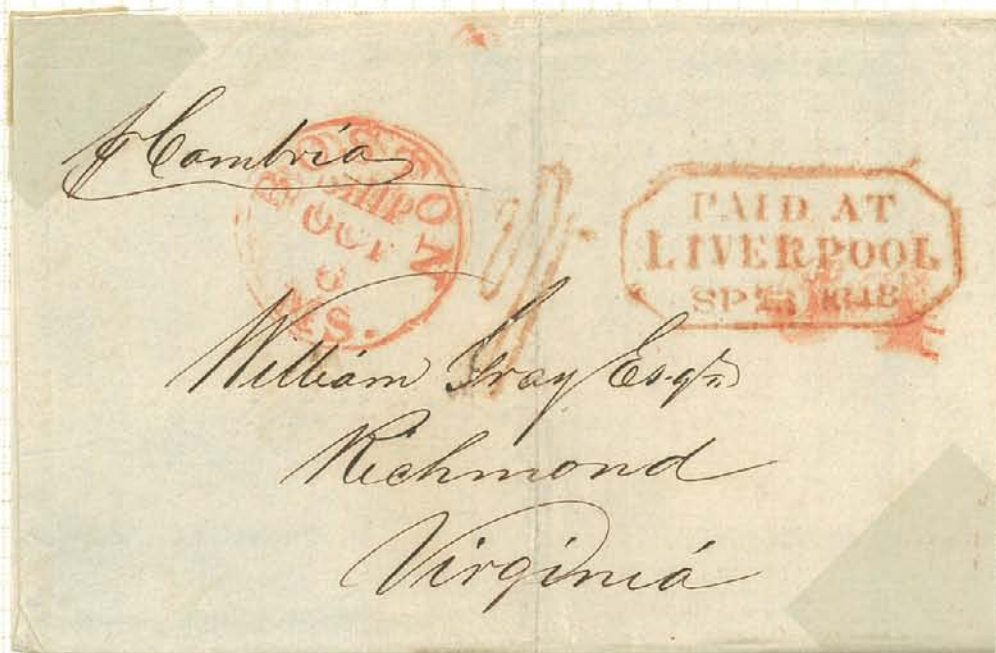 p Cambria
BOSTON
SHIP
OCT
8
MS.
1/-
PAID AT
LIVERPOOL
SP 1848
34
William Gray Esqr.
Richmond
Virginia